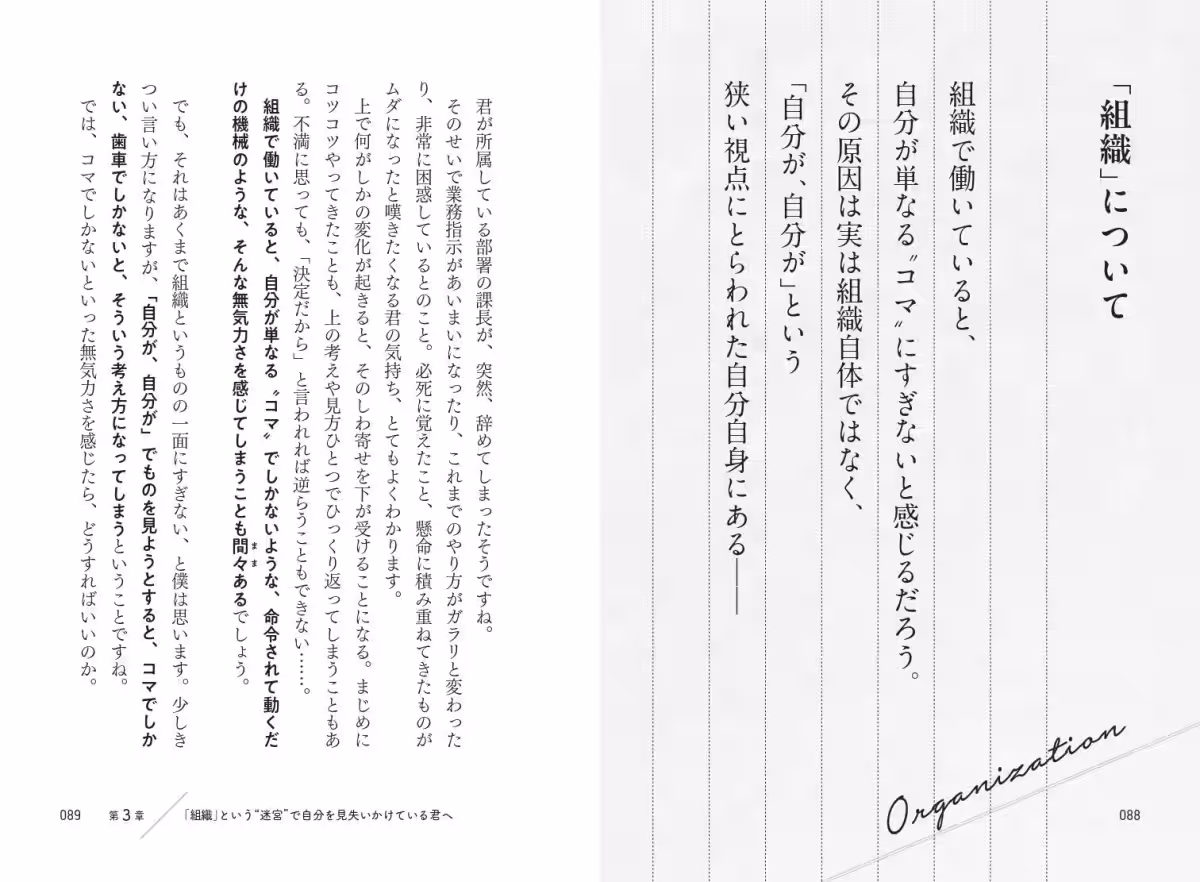 「組織」について
組織で働いていると、
自分が単なる〝コマ〟にすぎないと感じるだろう。
その原因は実は組織自体ではなく、
「自分が、自分が」という
狭い視点にとらわれた自分自身にある――
Organization
088
君が所属している部署の課長が、突然、辞めてしまったそうですね。
そのせいで業務指示があいまいになったり、これまでのやり方がガラリと変わった
り、非常に困惑しているとのこと。必死に覚えたこと、懸命に積み重ねてきたものが
ムダになったと嘆きたくなる君の気持ち、とてもよくわかります。
上で何がしかの変化が起きると、そのしわ寄せを下が受けることになる。まじめに
コツコツやってきたことも、上の考えや見方ひとつでひっくり返ってしまうこともあ
る。不満に思っても、「決定だから」と言われれば逆らうこともできない……。
組織で働いていると、自分が単なる〝コマ〟でしかないような、命令されて動くだ
けの機械のような、そんな無気力さを感じてしまうことも間々あるでしょう。
まま
でも、それはあくまで組織というものの一面にすぎない、と僕は思います。少しき
つい言い方になりますが、「自分が、自分が」でものを見ようとすると、コマでしか
ない、歯車でしかないと、そういう考え方になってしまうということですね。
では、コマでしかないといった無気力さを感じたら、どうすればいいのか。
089 第3章 「組織」という“迷宮”で自分を見失いかけている君へ